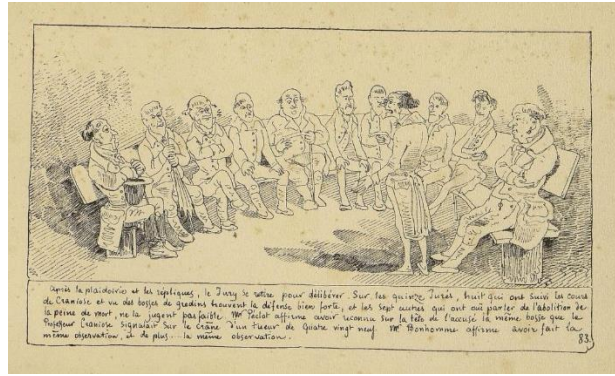 Après la plaidoirie et les répliques, le Jury se retire pour délibérer. Sur les quinze Jurés, huit qui ont suivi les cours
de Craniose et vu des bosses de gredins trouvent la défense bien forte, et les Sept autres qui ont ouï parler de l'abolition de
la peine de mort, ne la jugent pas faible. Mr Péclot affirme avoir reconnu sur la tête de l'accusé la même bosse que le
Professeur Craniose signalait sur le Crâne d'un tueur de Quatre vingt neuf. Mr Bonhomme affirme avoir fait la
même observation, et de plus... la même observation.
83.